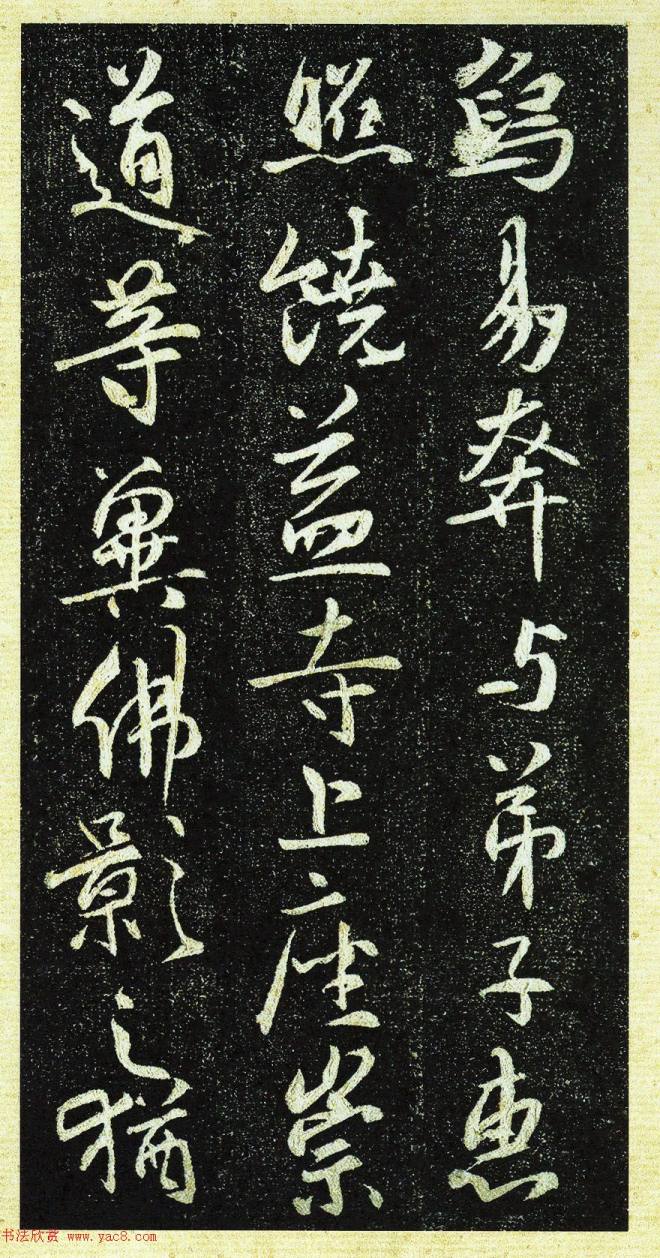 烏易奔与弟子惠
照饒益寺上座崇
道等冀佛影之猶
书法欣赏 www.yac8.com